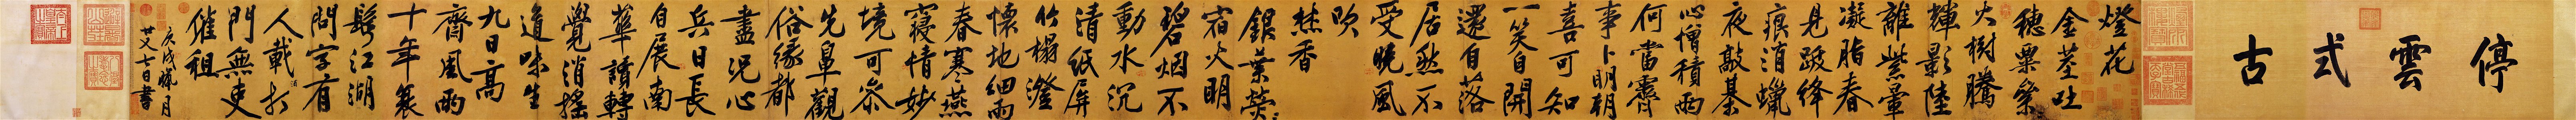 停雲式古
燈花
金莖吐
穗粟
火樹騰
輝影陸
離紫暈
凝脂春
見跋絳
痕消蠟
夜敲棊
心憎積雨
何當霽
事卜明朝
喜可知
一笑自開
還自落
居然不
受晚風
吹
焚香
銀葉熒熒
宿火明
碧烟不
動水沉
清紙屏
竹榻澄
懷地細雨
春寒燕
寢情妙
境可參
先鼻觀
俗緣都
盡況心
兵日長
自展南
華讀轉
覺逍搖
道味生
九日高
齊風雨
十年裘
江湖
問字有
人載
門無吏
催租
庚戌月
廿又七日書